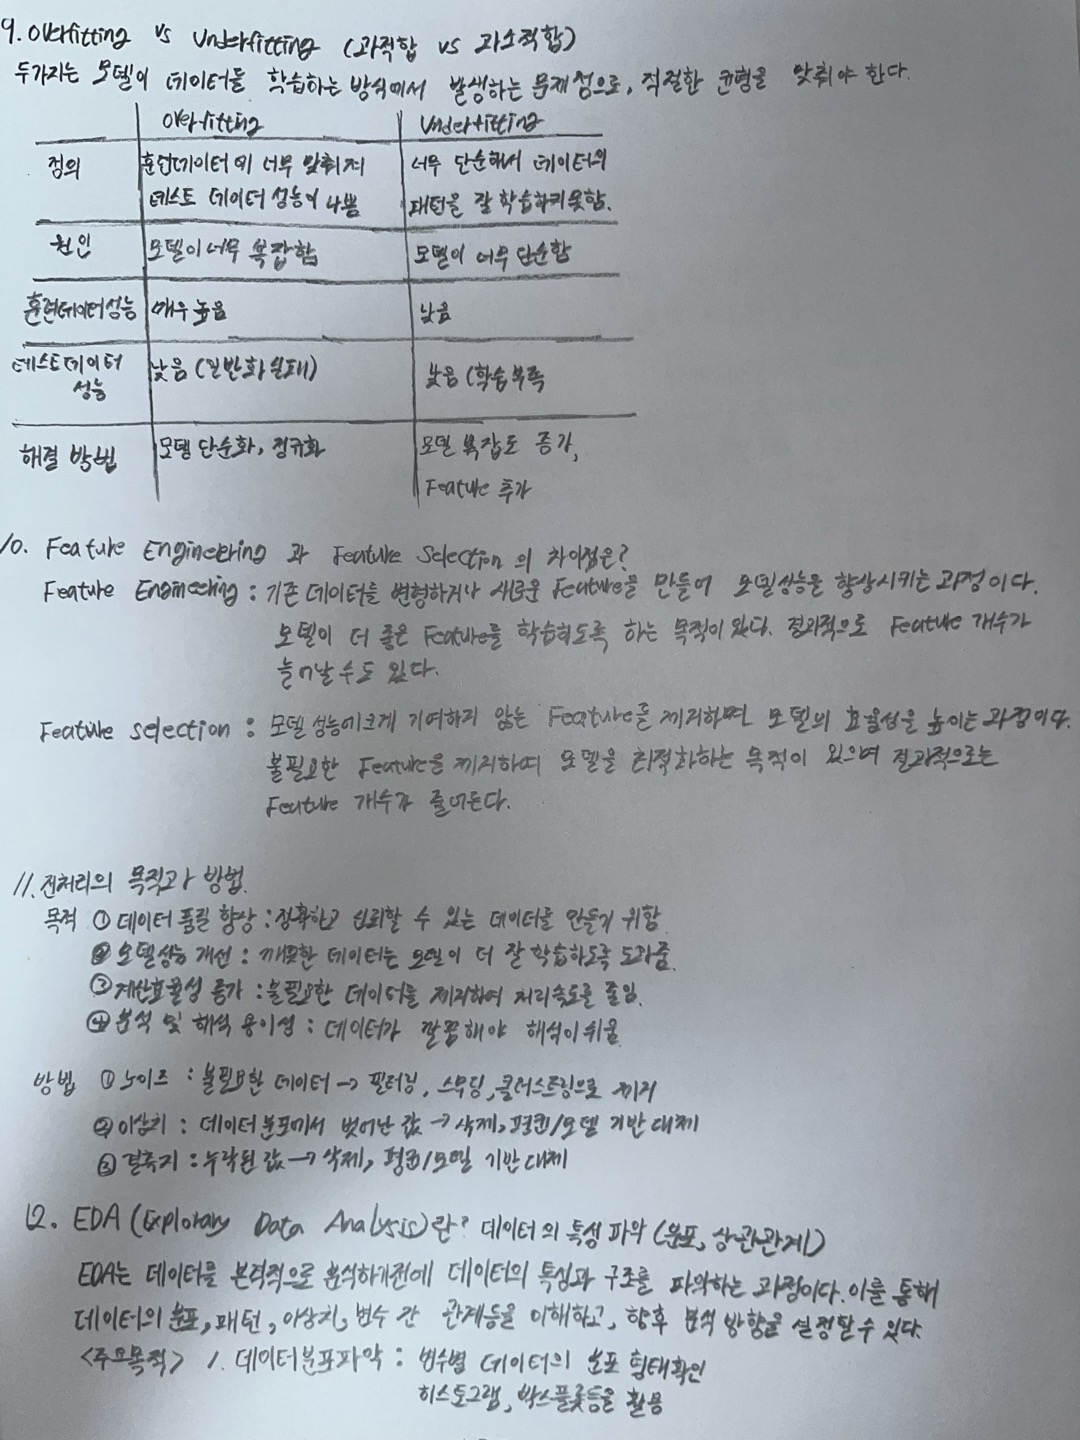 9. Overfitting vs Underfitting (과적합 vs 과소적합)
두가지는 모델이 데이터를 학습하는 방식에서 발생하는 문제점으로, 적절한 균형을 맞춰야 한다.
Overfitting Underfitting
정의 훈련데이터에 너무 맞춰져 너무 단순해서 데이터의
테스트 데이터 성능이 나쁨 패턴을 잘 학습하지못함.
원인 모델이 너무 복잡함 모델이 너무 단순함
훈련데이터성능 매우높음 낮음
테스트데이터 낮음 (일반화실패) 낮음 (학습부족
성능
해결 방법 모델 단순화, 정규화 모델 복잡도 증가,
Feature 추가
10. Feature Engineering 과 Feature Selection 의 차이점은?
Feature Engineering : 기존 데이터를 변형하거나 새로운 Feature를 만들어 모델성능을 향상시키는 과정이다.
모델이 더 좋은 Feature를 학습하도록 하는 목적이 있다. 결과적으로 Feature 개수가
늘어날 수도 있다.
Feature selection : 모델 성능에크게 기여하지 않는 Feature를 제거하며 모델의 효율성을 높이는 과정이다.
불필요한 Feature을 제거하여 모델을 최적화하는 목적이 있으며 결과적으로는
Feature 개수가 줄어든다.
11. 전처리의 목적과 방법.
목적 ① 데이터 품질 향상 : 정확하고 신뢰할 수 있는 데이터를 만들기 위함
② 모델성능 개선 : 깨끗한 데이터는 모델이 더 잘 학습하도록 도와줌.
③ 계산효율성 증가 : 불필요한 데이터를 제거하여 처리속도를 줄임.
④ 분석 및 해석 용이성 : 데이터가 깔끔해야 해석이 쉬움
방법 ① 노이즈 : 불필요한 데이터 → 필터링, 스무딩, 클러스트링으로 제거
② 이상치 : 데이터분포에서 벗어난 값 → 삭제, 평균/모델 기반 대체
③ 결측치 : 누락된 값 → 삭제, 평균/모델 기반 대체
12. EDA (Explorary Data Analysis)란? 데이터의 특성 파악 (분포, 상관관계)
EDA는 데이터를 본격적으로 분석하기전에 데이터의 특성과 구조를 파악하는 과정이다. 이를 통해
데이터의 분포, 패턴, 이상치, 변수 간 관계등을 이해하고, 향후 분석 방향을 설정할 수 있다.
<주요목적> 1. 데이터분포파악 : 변수별 데이터의 분포 형태확인
히스토그램, 박스플롯등을 활용